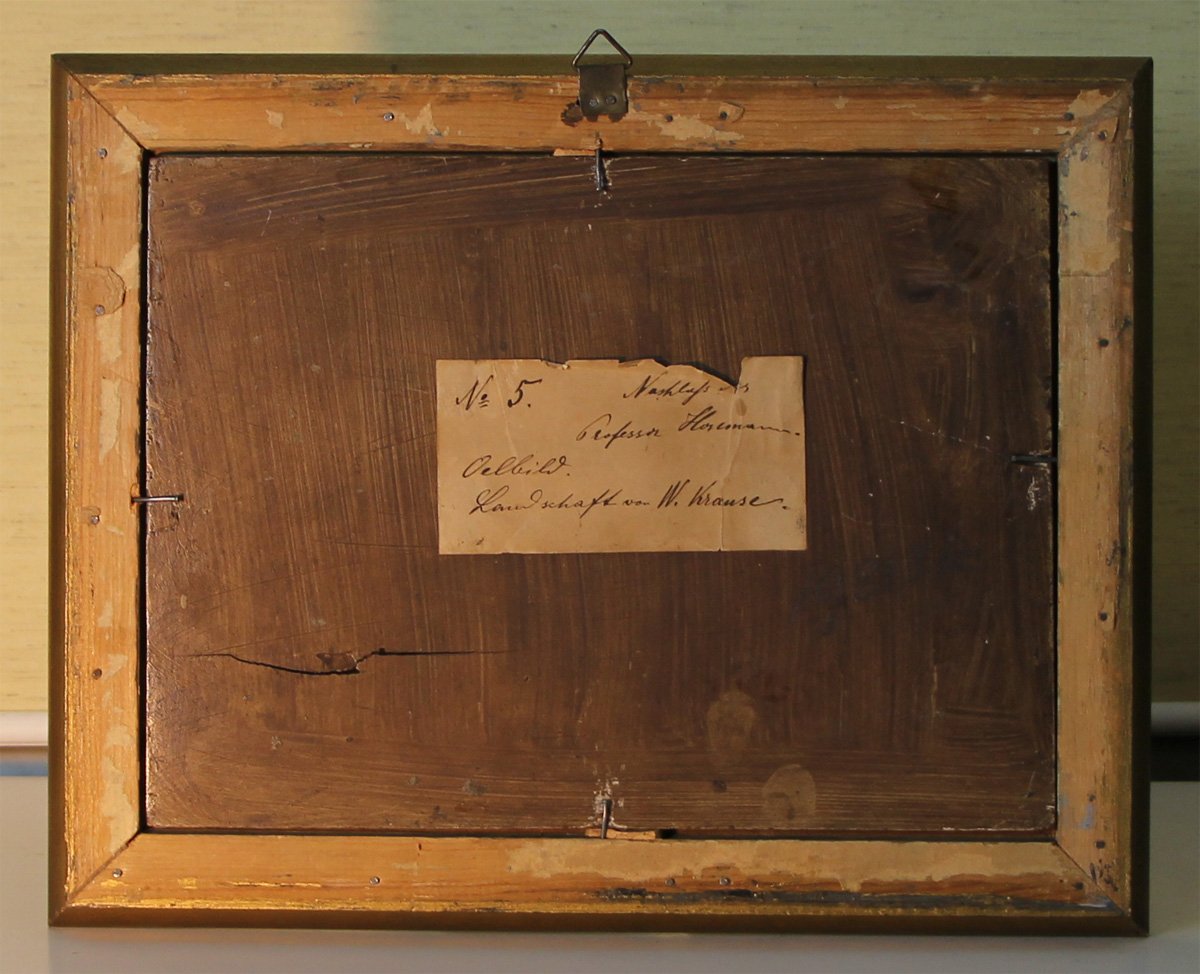 No 5. Nachlaß des
Professor Hosemann.
Oelbild.
Landschaft von W. Krause.